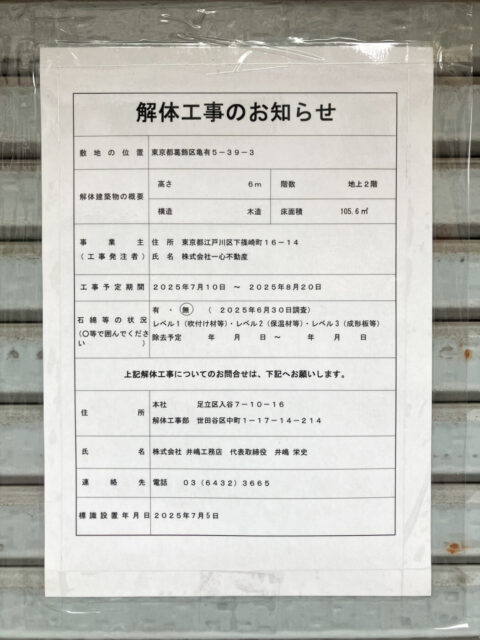 解体工事のお知らせ
敷地の位置 東京都葛飾区亀有5-39-3
解体建築物の概要 高さ 6m 階数 地上2階
構造 木造 床面積 105.6㎡
事業主 住所 東京都江戸川区下篠崎町16-14
(工事発注者) 氏名 株式会社一心不動産
工事予定期間 2025年7月10日 ~ 2025年8月20日
石綿等の状況 有・無 (2025年6月30日調査)
(○等で囲んでください) レベル1(吹付け材等)・レベル2(保温材等)・レベル3(成形板等)
除去予定 年 月 日 ~ 年 月 日
上記解体工事についてのお問合せは、下記へお願いします。
住所 本社 足立区入谷7-10-16
解体工事部 世田谷区中町1-17-14-214
氏名 株式会社 井嶋工務店 代表取締役 井嶋 栄史
連絡先 電話 03(6432)3665
標識設置年月日 2025年7月5日